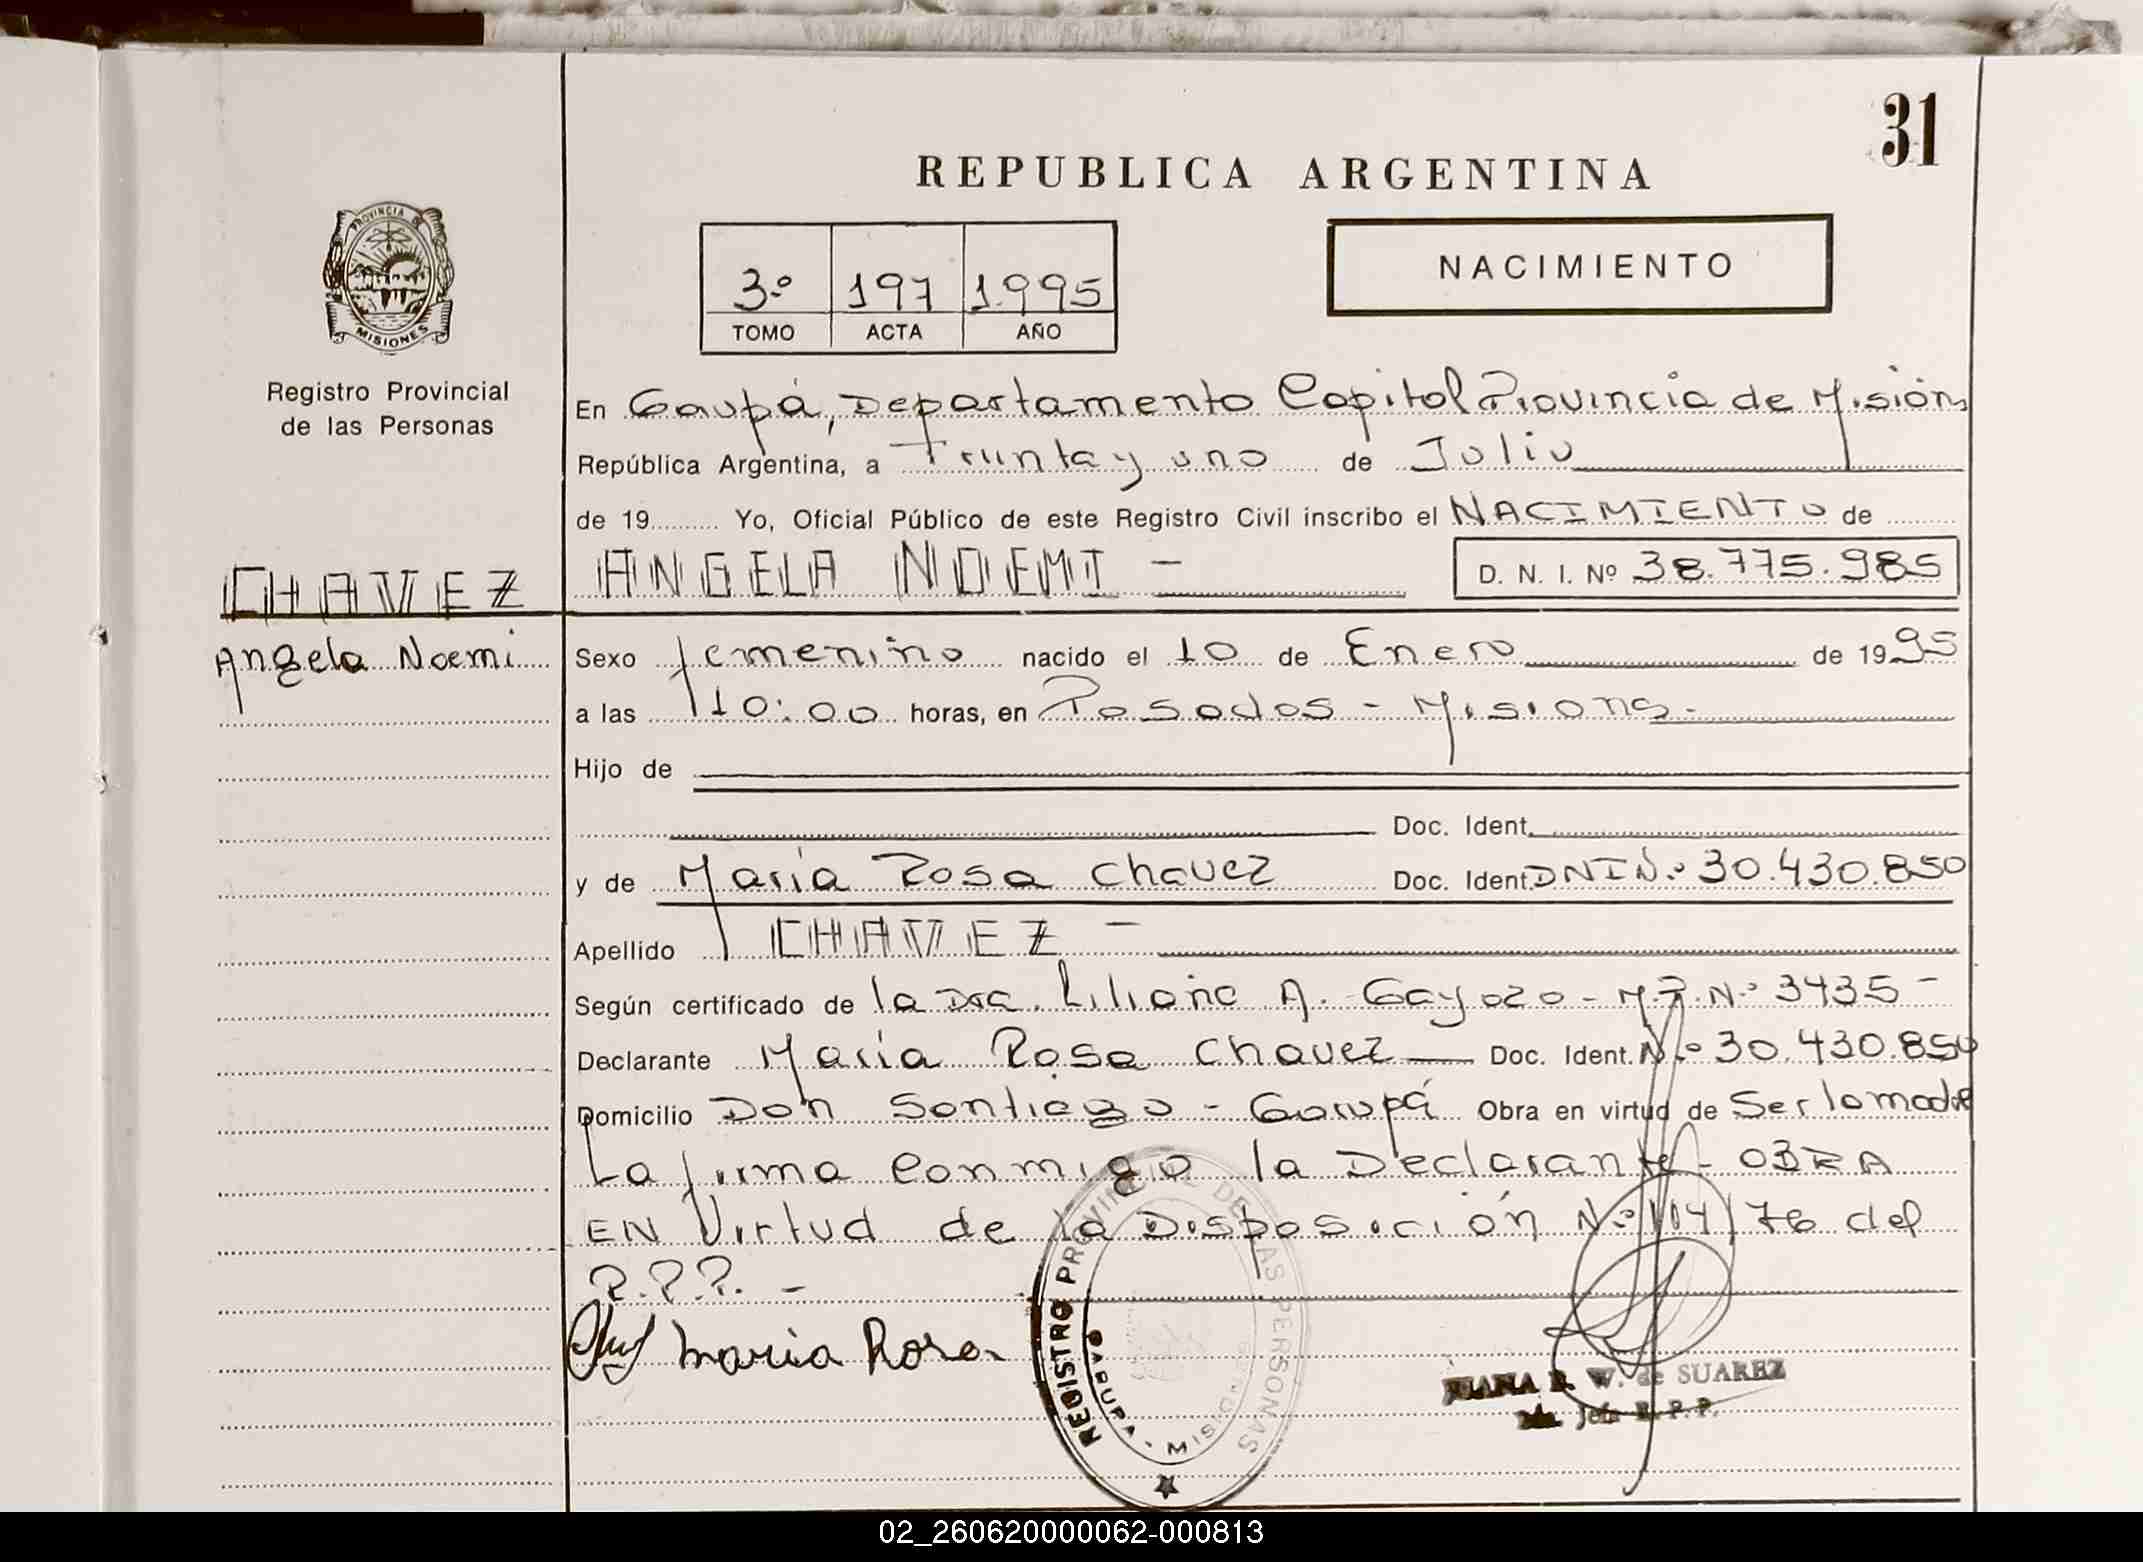 31
REPUBLICA ARGENTINA
PROVINCIA DE
MISIONES
3º 197 1.995
TOMO ACTA AÑO
NACIMIENTO
Registro Provincial
de las Personas
En Gaupá, Departamento Capital Provincia de Mision
República Argentina, a Treinta y uno de Julio
de 19 Yo, Oficial Público de este Registro Civil inscribo el NACIMIENTO de
CHAVEZ ANGELA NOEMI - D. N. I. Nº 38.775.985
Angela Noemi Sexo femenino nacido el 10 de Enero de 1995
a las 10:00 horas, en Posadas - Misiones.
Hijo de
Doc. Ident.
y de Maria Rosa Chavez Doc. Ident. DNI Nº 30.430.850
Apellido CHAVEZ -
Según certificado de la Dra. Liliana A. Gayozo - M.P. Nº 3435 -
Declarante Maria Rosa Chavez Doc. Ident. Nº 30.430.850
Domicilio Don Santiago - Garupá Obra en virtud de Ser la madre
La firma conmigo la Declarante - OBRA
EN Virtud de la Disposición Nº 104/76 del
R.P.P. -
Maria Rosa
REGISTRO PROVINCIAL DE LAS PERSONAS
GARUPA - MISIONES
JUANA R. W. de SUAREZ
Jefa R. P. P.
02_260620000062-000813